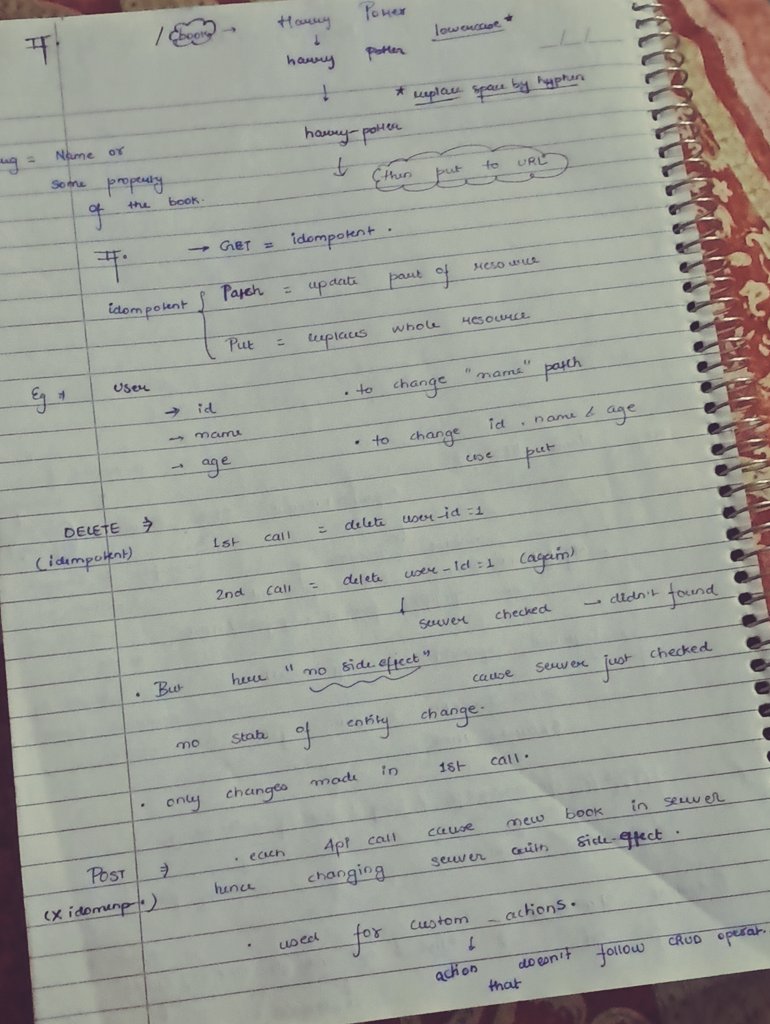 / ebook → Harry Potter
↓
harry potter lowercase *
↓ * replace space by hyphen
harry-potter
↓ (then put to URL
ug = Name or
some property
of the book.
→ GET = idompotent.
idompotent { Patch = update part of resource
Put = replaces whole resource
Eg → User • to change "name" patch
→ id
→ name • to change id, name & age
→ age use put
DELETE ⇒ 1st call = delete user-id=1
(idempotent)
2nd call = delete user-id=1 (again)
↓
server checked → didn't found
• But here "no side-effect" cause server just checked
no state of entity change.
• only changes made in 1st call.
POST ⇒ • each Api call cause new book in server
(X idomenp.) hence changing server with side-effect.
• used for custom - actions.
↓
action doesn't follow CRUD operat.
that